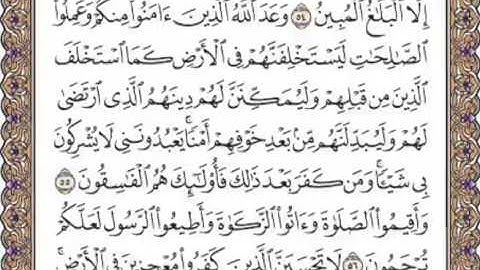 إِلَّا ٱلۡبَلَٰغُ ٱلۡمُبِينُ ٥٤ وَعَدَ ٱللَّهُ ٱلَّذِينَ ءَامَنُواْ مِنكُمۡ وَعَمِلُواْ
ٱلصَّٰلِحَٰتِ لَيَسۡتَخۡلِفَنَّهُمۡ فِي ٱلۡأَرۡضِ كَمَا ٱسۡتَخۡلَفَ
ٱلَّذِينَ مِن قَبۡلِهِمۡ وَلَيُمَكِّنَنَّ لَهُمۡ دِينَهُمُ ٱلَّذِي ٱرۡتَضَىٰ
لَهُمۡ وَلَيُبَدِّلَنَّهُم مِّنۢ بَعۡدِ خَوۡفِهِمۡ أَمۡنٗاۚ يَعۡبُدُونَنِي لَا يُشۡرِكُونَ
بِي شَيۡـٔٗاۚ وَمَن كَفَرَ بَعۡدَ ذَٰلِكَ فَأُوْلَٰٓئِكَ هُمُ ٱلۡفَٰسِقُونَ ٥٥
وَأَقِيمُواْ ٱلصَّلَوٰةَ وَءَاتُواْ ٱلزَّكَوٰةَ وَأَطِيعُواْ ٱلرَّسُولَ لَعَلَّكُمۡ
تُرۡحَمُونَ ٥٦ لَا تَحۡسَبَنَّ ٱلَّذِينَ كَفَرُواْ مُعۡجِزِينَ فِي ٱلۡأَرۡضِۚ